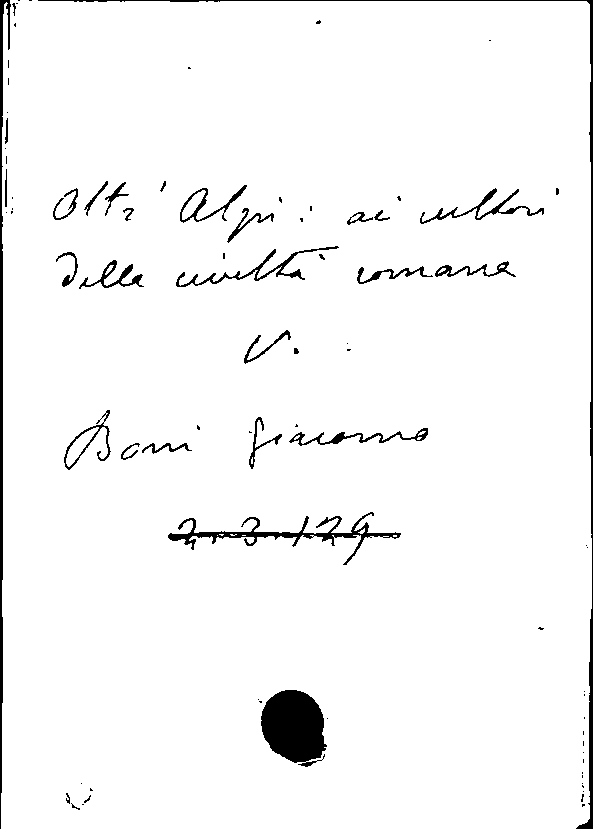 Oltr' Alpi: ai cultori
della civiltà romana
V.
Boni Giacomo
2.3.129